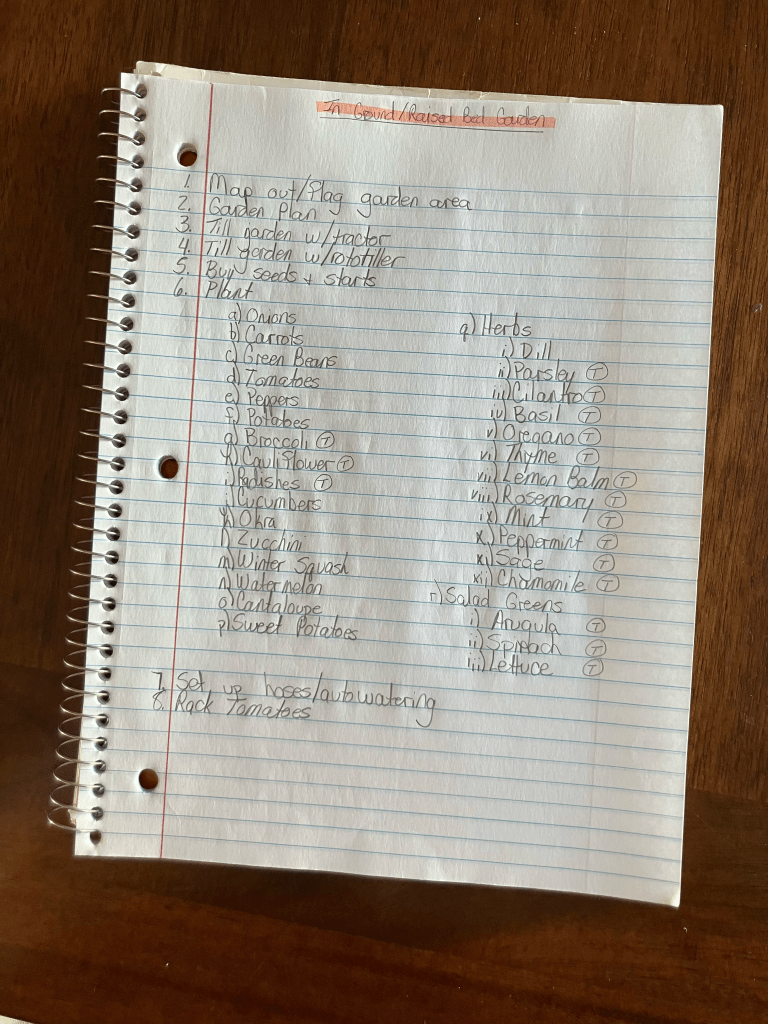 In Ground/Raised Bed Garden
1. Map out/flag garden area
2. Garden Plan
3. Till garden w/tractor
4. Till garden w/rototiller
5. Buy seeds + starts
6. Plant
a) Onions
b) Carrots
c) Green Beans
d) Tomatoes
e) Peppers
f) Potatoes
g) Broccoli T
h) Cauliflower T
i) Radishes T
j) Cucumbers
k) Okra
l) Zucchini
m) Winter Squash
n) Watermelon
o) Cantaloupe
p) Sweet Potatoes
q) Herbs
i) Dill
ii) Parsley T
iii) Cilantro T
iv) Basil T
v) Oregano T
vi) Thyme T
vii) Lemon Balm T
viii) Rosemary T
ix) Mint T
x) Peppermint T
xi) Sage T
xii) Chamomile T
r) Salad Greens
i) Arugula T
ii) Spinach T
iii) Lettuce T
7. Set up hoses/autowatering
8. Rack Tomatoes